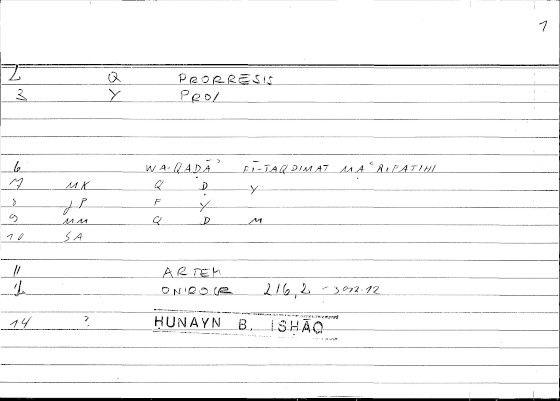 1
2 Q PRORRESIS
3 Y PRO/
6 WA-QAḌĀʾ FĪ-TAQDIMAT MAʿRIFATIHI
7 MK Q Ḍ Y
8 JP F Y
9 MM Q Ḍ M
10 SA
11 ARTEM
12 ONIROCR 216,2
14 ? ḤUNAYN B. ISḤĀQ